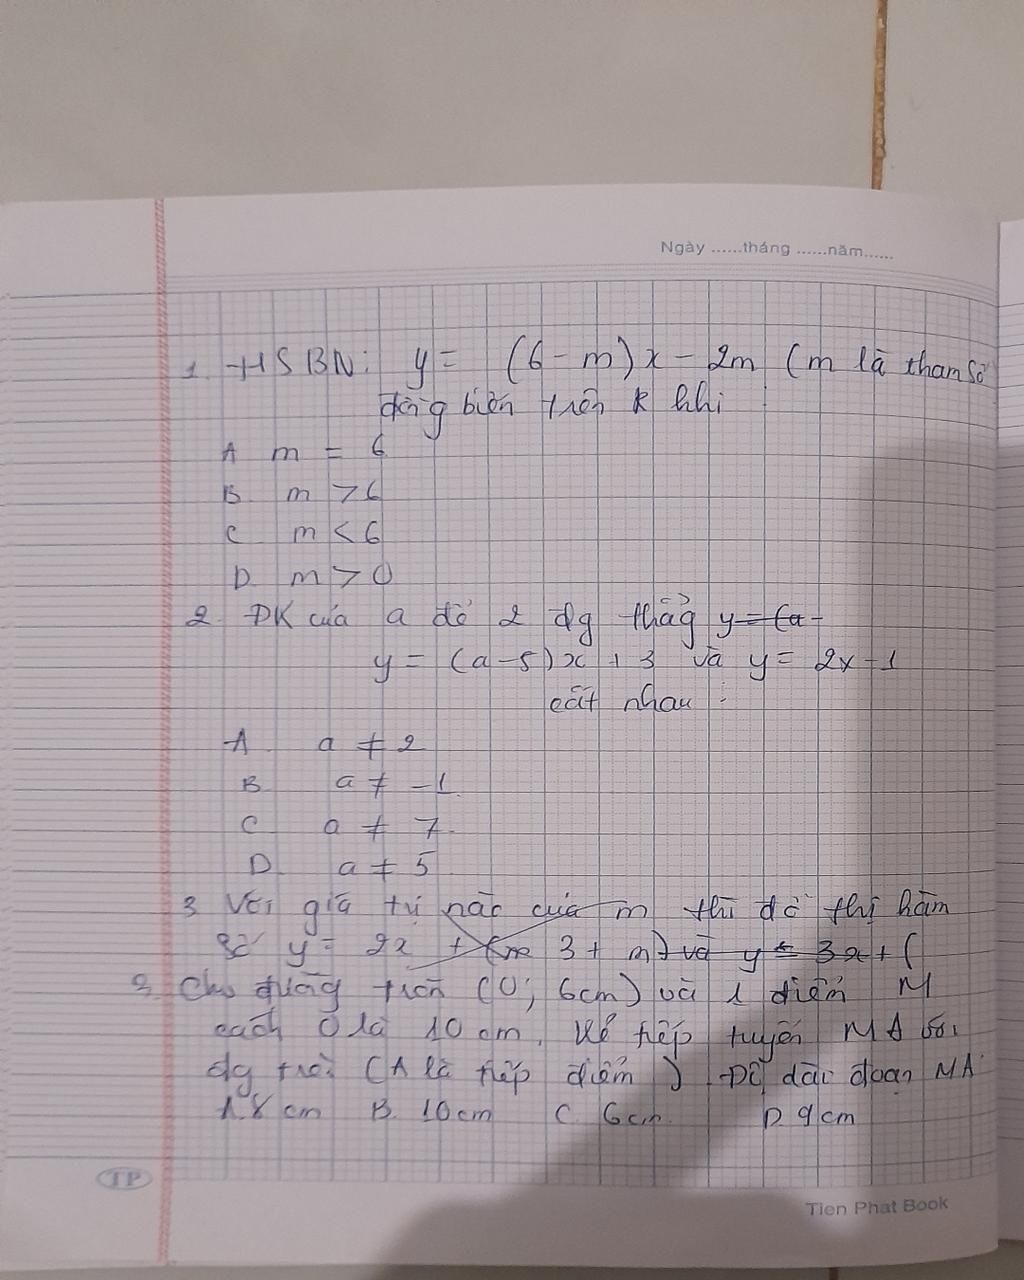 Ngày ......tháng ......năm......
1. HSBN: y = (6 - m)x - 2m (m là tham số
đồng biến trên R khi :
A m = 6
B. m > 6
C m < 6
D. m > 0
2. ĐK của a để 2 đg thẳg y = (a -
y = (a - 5)x + 3 và y = 2x - 1
cắt nhau :
A. a ≠ 2
B. a ≠ -1.
C. a ≠ 7.
D. a ≠ 5
3 Với giá trị nào của m thì đồ thị hàm
số y = 2x + 3 + m) và y = 3x + (
3. Cho đường tròn (O; 6cm) và 1 điểm M
cách O là 10 cm. Kẻ tiếp tuyến MA với
đg tròn (A là tiếp điểm). Độ dài đoạn MA
A. 8 cm B. 10 cm C. 6 cm. D. 9 cm
TP
Tien Phat Book